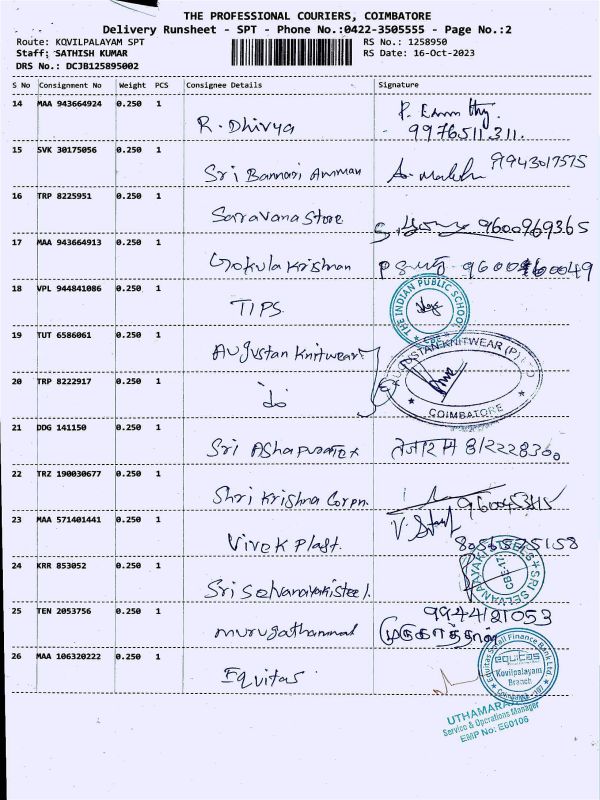 THE PROFESSIONAL COURIERS, COIMBATORE
Delivery Runsheet - SPT - Phone No.:0422-3505555 - Page No.:2
Route: KOVILPALAYAM SPT RS No.: 1258950
Staff: SATHISH KUMAR RS Date: 16-Oct-2023
DRS No.: DCJB125895002
S No Consignment No Weight PCS Consignee Details Signature
14 MAA 943664924 0.250 1
R. Dhivya
9976511311.
15 SVK 30175056 0.250 1
Sri Bannari Amman 9943017575
16 TRP 8225951 0.250 1
Saravana Store 9600969365
17 MAA 943664913 0.250 1
Gokula Krishnan
18 VPL 944841086 0.250 1
TIPS
THE INDIAN PUBLIC SCHOOL
19 TUT 6586061 0.250 1
Augustan Knitwear
AUGUSTAN KNITWEAR (P) LTD
COIMBATORE
20 TRP 8222917 0.250 1
do
21 DDG 141150 0.250 1
Sri Ashapuratex
22 TRZ 190030677 0.250 1
Shri Krishna Corpn.
23 MAA 571401441 0.250 1
Vivek Plast. 8056575158
24 KRR 853052 0.250 1
Sri Selvanayaki steel.
SRI SELVANAYAKI STEELS
25 TEN 2053756 0.250 1
9944121053
murugathammal முருகாத்தாள்
26 MAA 106320222 0.250 1
Equitas
Equitas Small Finance Bank Ltd
equitas
Kovilpalayam
Branch
Service & Operations Manager
EMP No: E60106